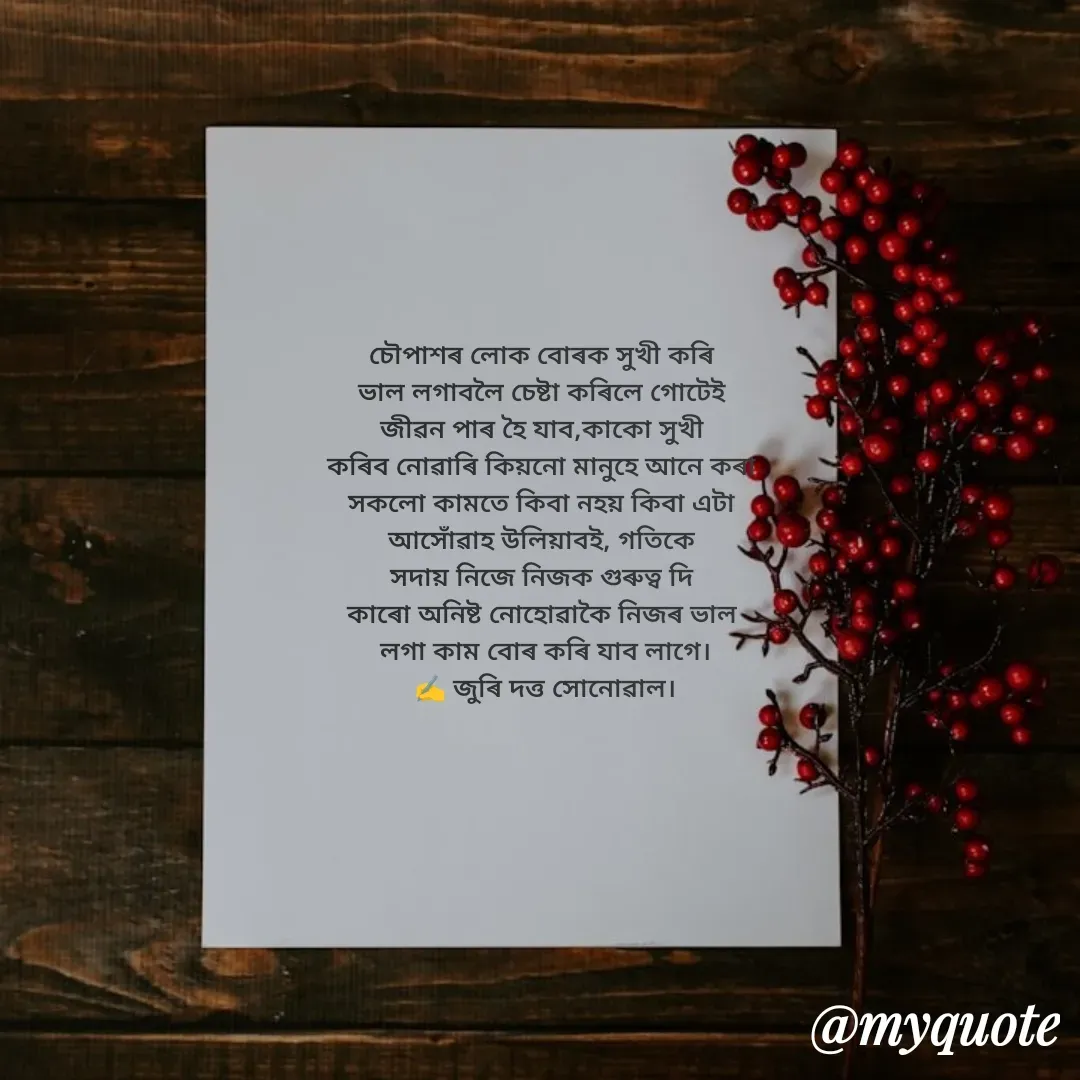 চৌপাশৰ লোক বোৰক সুখী কৰি
ভাল লগাবলৈ চেষ্টা কৰিলে গোটেই
জীৱন পাৰ হৈ যাব,কাকো সুখী
কৰিব নোৱাৰি কিয়নো মানুহে আনে কৰা
সকলো কামতে কিবা নহয় কিবা এটা
আসোঁৱাহ উলিয়াবই, গতিকে
সদায় নিজে নিজক গুৰুত্ব দি
কাৰো অনিষ্ট নোহোৱাকৈ নিজৰ ভাল
লগা কাম বোৰ কৰি যাব লাগে।
✍️ জুৰি দত্ত সোনোৱাল।
@myquote